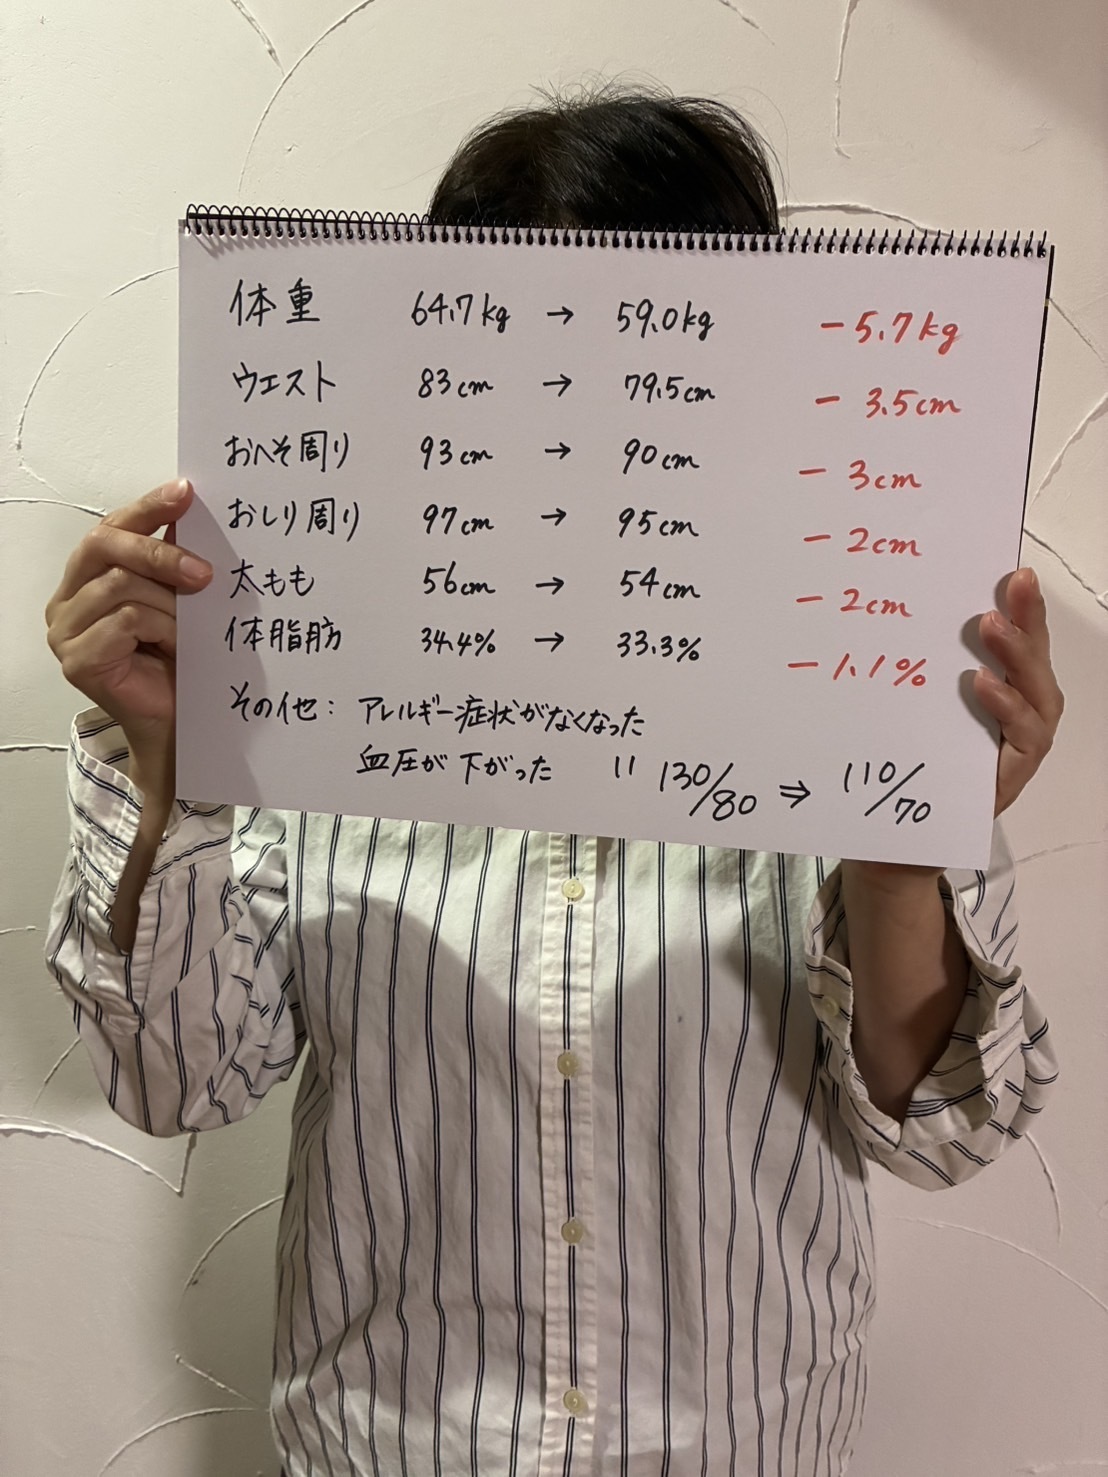 体重 64.7kg → 59.0kg −5.7kg
ウエスト 83cm → 79.5cm − 3.5cm
おへそ周り 93cm → 90cm − 3cm
おしり周り 97cm → 95cm − 2cm
太もも 56cm → 54cm − 2cm
体脂肪 34.4% → 33.3% − 1.1%
その他: アレルギー症状がなくなった
血圧が下がった 〃 130/80 ⇒ 110/70